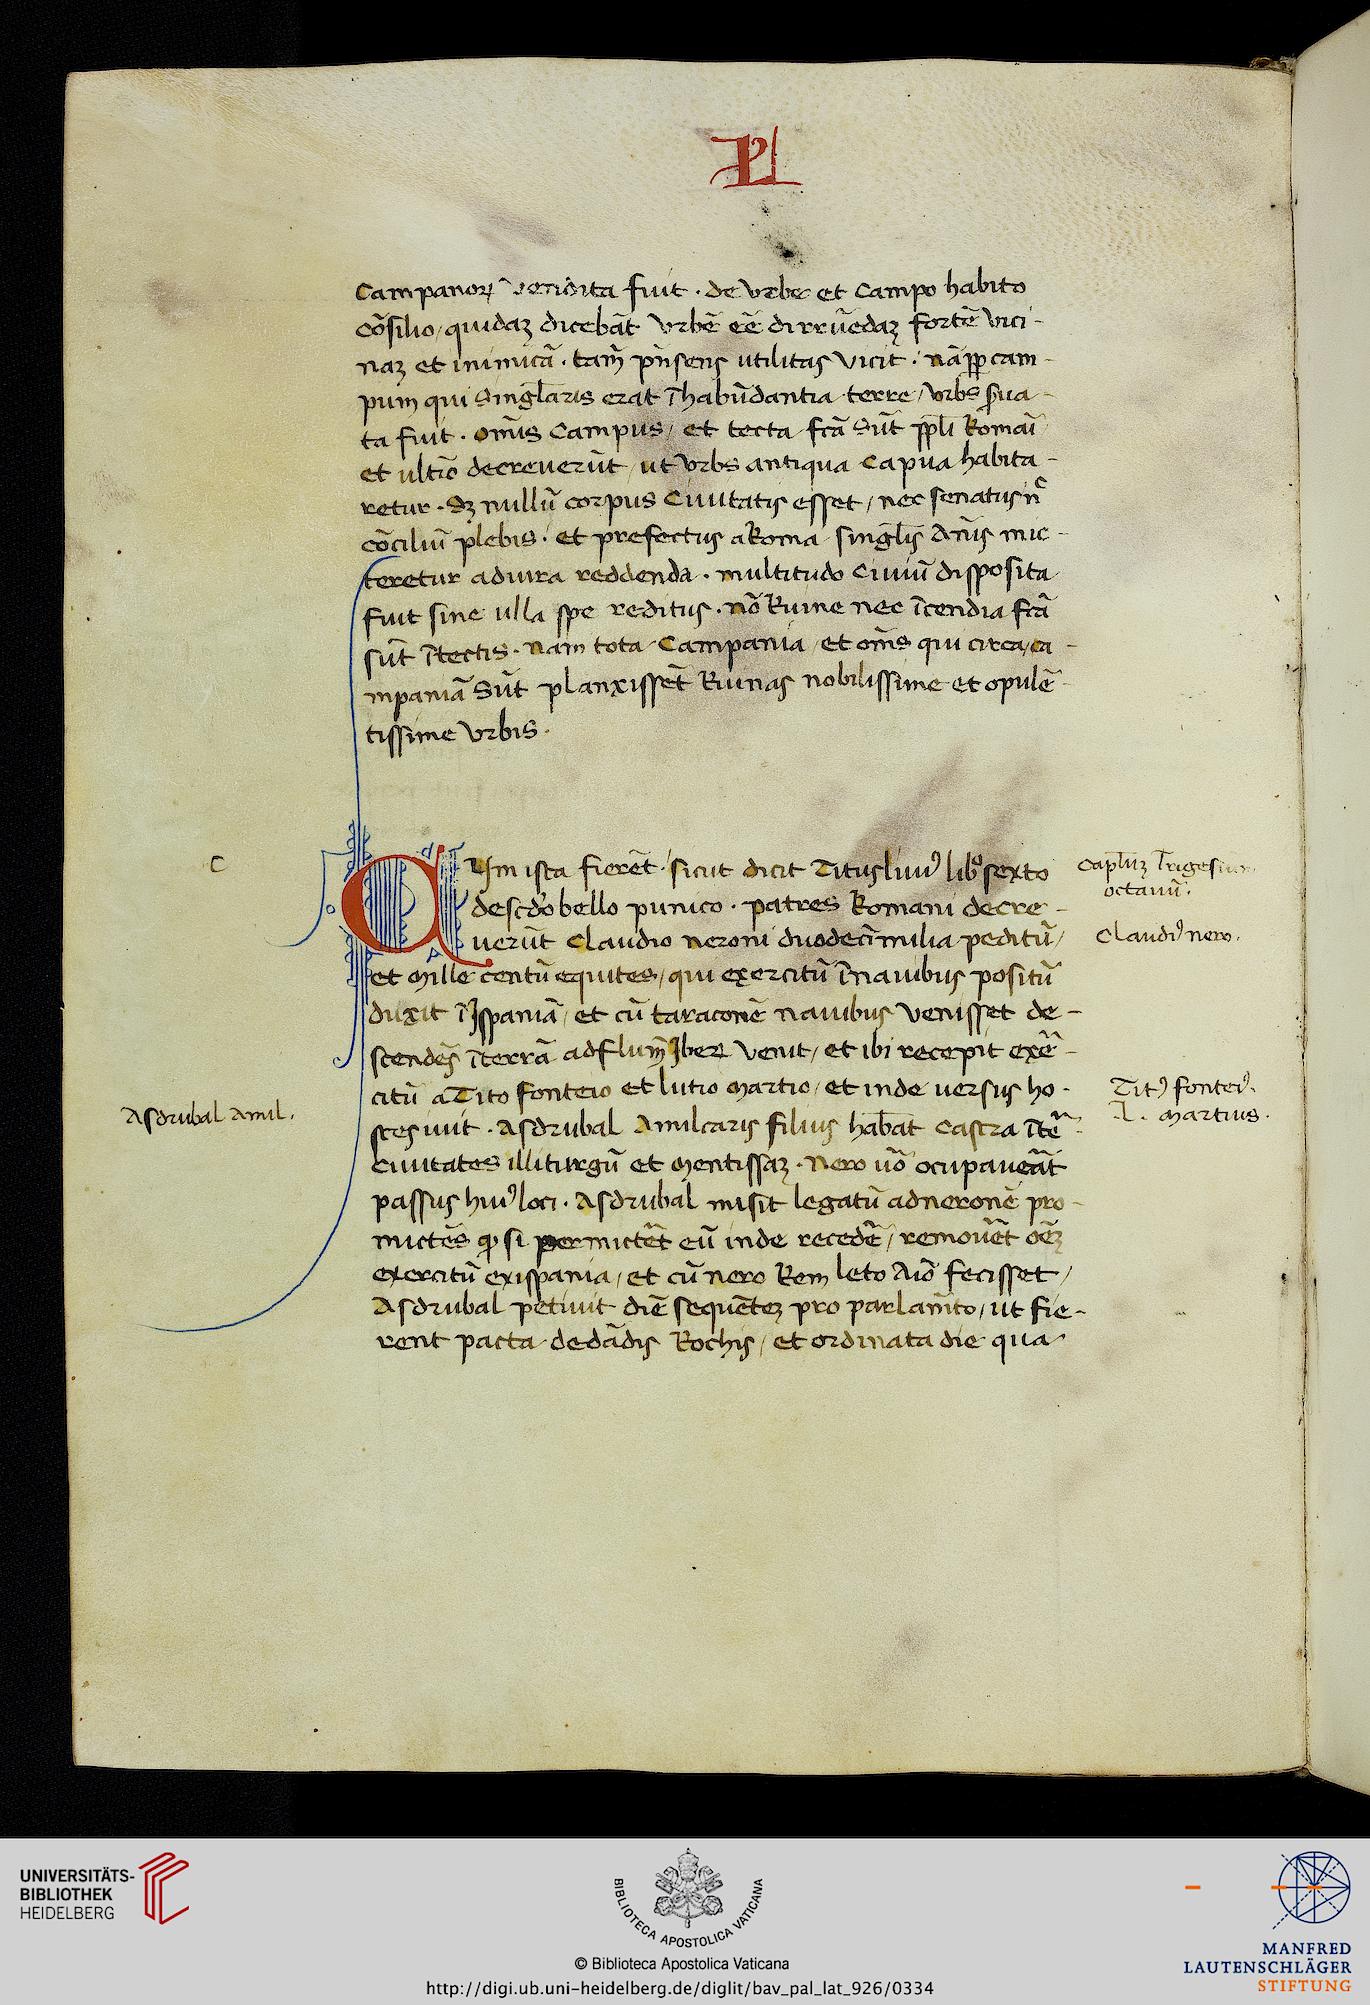 L
Campanoꝝ vendita fuit · de Vrbe et Campo habito
cōsilio / quidaʒ dicebāt Vrbē eē dirruēdaʒ fortē vici-
naʒ et inimicā · tam̄ pn̄sens utilitas vicit · nā ꝓp cam-
pum qui singl̄aris erat ī habūdantia terre / vrbs s̄rua-
ta fuit · om̄s Campus / et tecta fc̄a sūt ppl̄i Romāi
et ultīo decreuerūt / ut vrbs antiqua Capua habita-
retur · Sʒ nullū corpus Ciuitatis esset / nec senatus nc̄
cōciliū plebis · et prefectus a Roma singl̄is An̄is mic-
teretur ad iura reddenda · multitudo Ciuiū disposita
fuit sine ulla spe reditus · nō Ruine nec īcendia fc̄a
sūt ī tectis · nam tota Campania / et om̄s qui circa / ca-
mpaniā sūt planxissēt Ruinas nobilissime et opulē-
tissime Vrbis ·
c
CUm ista fierēt sicut dicit Titusliuiꝰ libº sexto
de scd̄o bello punico · patres Romani decre-
uerūt Claudio neroni duodecī milia peditū /
et Mille centū equites / qui exercitū ī nauibus positū
duxit ī Jspaniā / et cū taraconē nauibus venisset de-
scendēs ī terrā ad flum̄ Jbeꝝ venit / et ibi recepit exer̄-
citū a Tito fonteio et lutio Martio / et inde uersus ho-
stes iuit · Asdrubal Amilcaris filius habat̄ Castra īte-
Ciuitates illiturgū et Mentissaʒ · Nero uō ocupaueāt
passus huiꝰ loci · Asdrubal misit legatū ad neronē pro-
mictēs ꝙ si permictēt eū inde recedē / remouēt oēʒ
exercitū ex ispania / et cū nero Rem leto Aīo fecisset /
Asdrubal petiuit diē sequētēʒ pro parlam̄to / ut fie-
rent pacta de dādis Rochis / et ordinata die qua
Capl̄uʒ Trigesim
octauū ·
Claudiꝰ nero ·
Titꝰ fonteiꝰ ·
L · Martius ·
Asdrubal Amil ·
UNIVERSITÄTS-
BIBLIOTHEK
HEIDELBERG
BIBLIOTECA APOSTOLICA VATICANA
© Biblioteca Apostolica Vaticana
http://digi.ub.uni-heidelberg.de/diglit/bav_pal_lat_926/0334
MANFRED
LAUTENSCHLÄGER
STIFTUNG